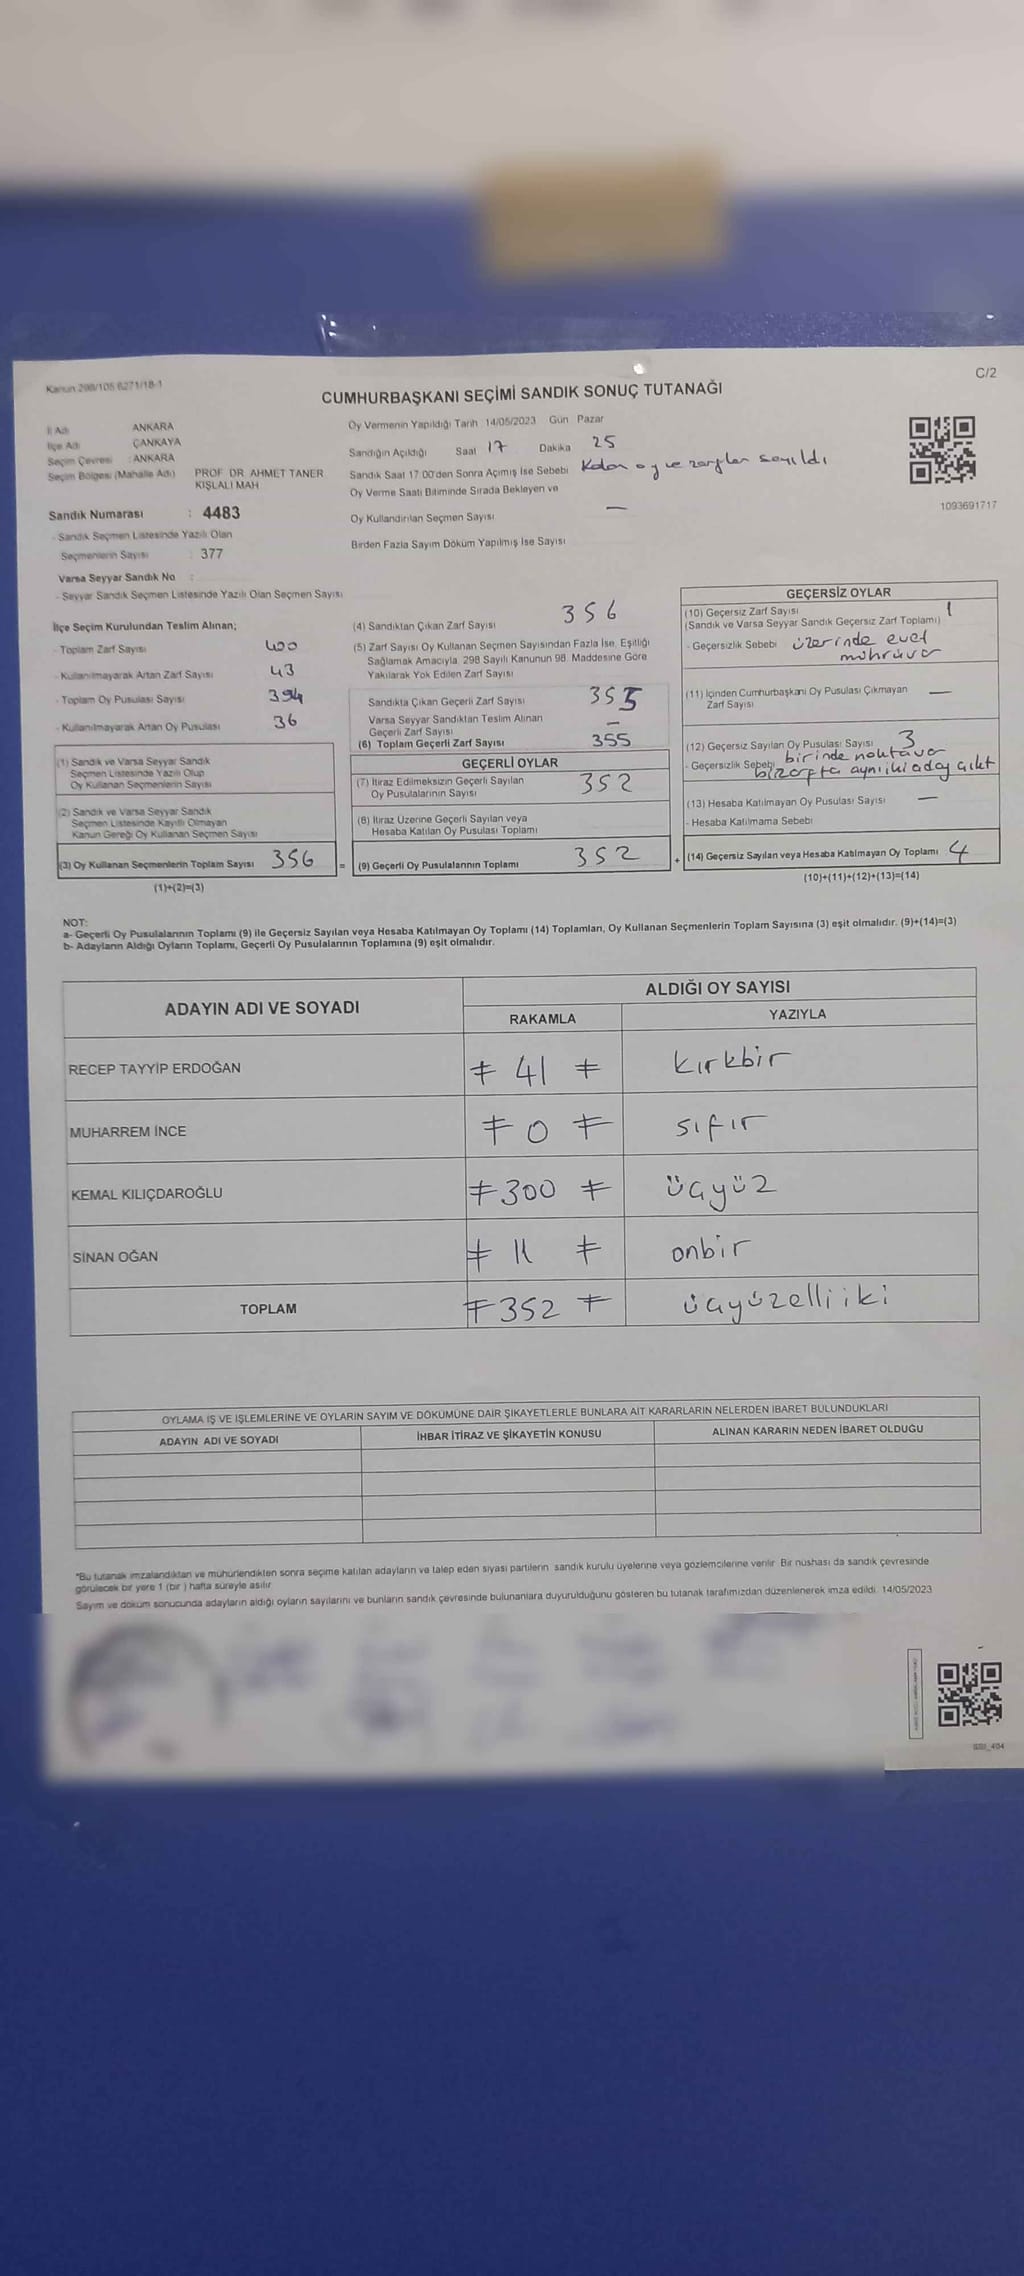 Kanun 298/105 6271/18-1
C/2
CUMHURBAŞKANI SEÇİMİ SANDIK SONUÇ TUTANAĞI
İl Adı : ANKARA
İlçe Adı : ÇANKAYA
Seçim Çevresi : ANKARA
Seçim Bölgesi (Mahalle Adı) : PROF DR AHMET TANER
KIŞLALI MAH
Sandık Numarası : 4483
- Sandık Seçmen Listesinde Yazılı Olan
Seçmenlerin Sayısı : 377
Varsa Seyyar Sandık No :
- Seyyar Sandık Seçmen Listesinde Yazılı Olan Seçmen Sayısı
Oy Vermenin Yapıldığı Tarih 14/05/2023 Gün Pazar
Sandığın Açıldığı Saat 17 Dakika 25
Sandık Saat 17:00'den Sonra Açımış İse Sebebi Kalan oy ve zarflar sayıldı
Oy Verme Saati Bitiminde Sırada Bekleyen ve
Oy Kullandırılan Seçmen Sayısı —
Birden Fazla Sayım Döküm Yapılmış İse Sayısı
1093691717
İlçe Seçim Kurulundan Teslim Alınan;
- Toplam Zarf Sayısı 400
- Kullanılmayarak Artan Zarf Sayısı 43
- Toplam Oy Pusulası Sayısı 394
- Kullanılmayarak Artan Oy Pusulası 36
(1) Sandık ve Varsa Seyyar Sandık
Seçmen Listesinde Yazılı Olup
Oy Kullanan Seçmenlerin Sayısı
(2) Sandık ve Varsa Seyyar Sandık
Seçmen Listesinde Kayıtlı Olmayan
Kanun Gereği Oy Kullanan Seçmen Sayısı
(3) Oy Kullanan Seçmenlerin Toplam Sayısı 356
(1)+(2)=(3)
(4) Sandıktan Çıkan Zarf Sayısı 356
(5) Zarf Sayısı Oy Kullanan Seçmen Sayısından Fazla İse, Eşitliği
Sağlamak Amacıyla, 298 Sayılı Kanunun 98. Maddesine Göre
Yakılarak Yok Edilen Zarf Sayısı
Sandıkta Çıkan Geçerli Zarf Sayısı 355
Varsa Seyyar Sandıktan Teslim Alınan
Geçerli Zarf Sayısı —
(6) Toplam Geçerli Zarf Sayısı 355
GEÇERLİ OYLAR
(7) İtiraz Edilmeksizin Geçerli Sayılan
Oy Pusulalarının Sayısı 352
(8) İtiraz Üzerine Geçerli Sayılan veya
Hesaba Katılan Oy Pusulası Toplamı
= (9) Geçerli Oy Pusulalarının Toplamı 352
GEÇERSİZ OYLAR
(10) Geçersiz Zarf Sayısı 1
(Sandık ve Varsa Seyyar Sandık Geçersiz Zarf Toplamı)
- Geçersizlik Sebebi üzerinde evet
mührü var
(11) İçinden Cumhurbaşkanı Oy Pusulası Çıkmayan —
Zarf Sayısı
(12) Geçersiz Sayılan Oy Pusulası Sayısı 3
- Geçersizlik Sebebi birinde nokta var
bi zarfta aynı iki aday çıktı
(13) Hesaba Katılmayan Oy Pusulası Sayısı —
- Hesaba Katılmama Sebebi
+ (14) Geçersiz Sayılan veya Hesaba Katılmayan Oy Toplamı 4
(10)+(11)+(12)+(13)=(14)
NOT:
a- Geçerli Oy Pusulalarının Toplamı (9) ile Geçersiz Sayılan veya Hesaba Katılmayan Oy Toplamı (14) Toplamları, Oy Kullanan Seçmenlerin Toplam Sayısına (3) eşit olmalıdır. (9)+(14)=(3)
b- Adayların Aldığı Oyların Toplamı, Geçerli Oy Pusulalarının Toplamına (9) eşit olmalıdır.
ADAYIN ADI VE SOYADI ALDIĞI OY SAYISI
RAKAMLA YAZIYLA
RECEP TAYYİP ERDOĞAN ≠ 41 ≠ kırkbir
MUHARREM İNCE ≠ 0 ≠ sıfır
KEMAL KILIÇDAROĞLU ≠ 300 ≠ üçyüz
SİNAN OĞAN ≠ 11 ≠ onbir
TOPLAM ≠ 352 ≠ üçyüzelliiki
OYLAMA İŞ VE İŞLEMLERİNE VE OYLARIN SAYIM VE DÖKÜMÜNE DAİR ŞİKAYETLERLE BUNLARA AİT KARARLARIN NELERDEN İBARET BULUNDUKLARI
ADAYIN ADI VE SOYADI İHBAR İTİRAZ VE ŞİKAYETİN KONUSU ALINAN KARARIN NEDEN İBARET OLDUĞU
*Bu tutanak imzalandıktan ve mühürlendikten sonra seçime katılan adayların ve talep eden siyasi partilerin sandık kurulu üyelerine veya gözlemcilerine verilir. Bir nüshası da sandık çevresinde
görülecek bir yere 1 (bir ) hafta süreyle asılır.
Sayım ve döküm sonucunda adayların aldığı oyların sayılarını ve bunların sandık çevresinde bulunanlara duyurulduğunu gösteren bu tutanak tarafımızdan düzenlenerek imza edildi. 14/05/2023